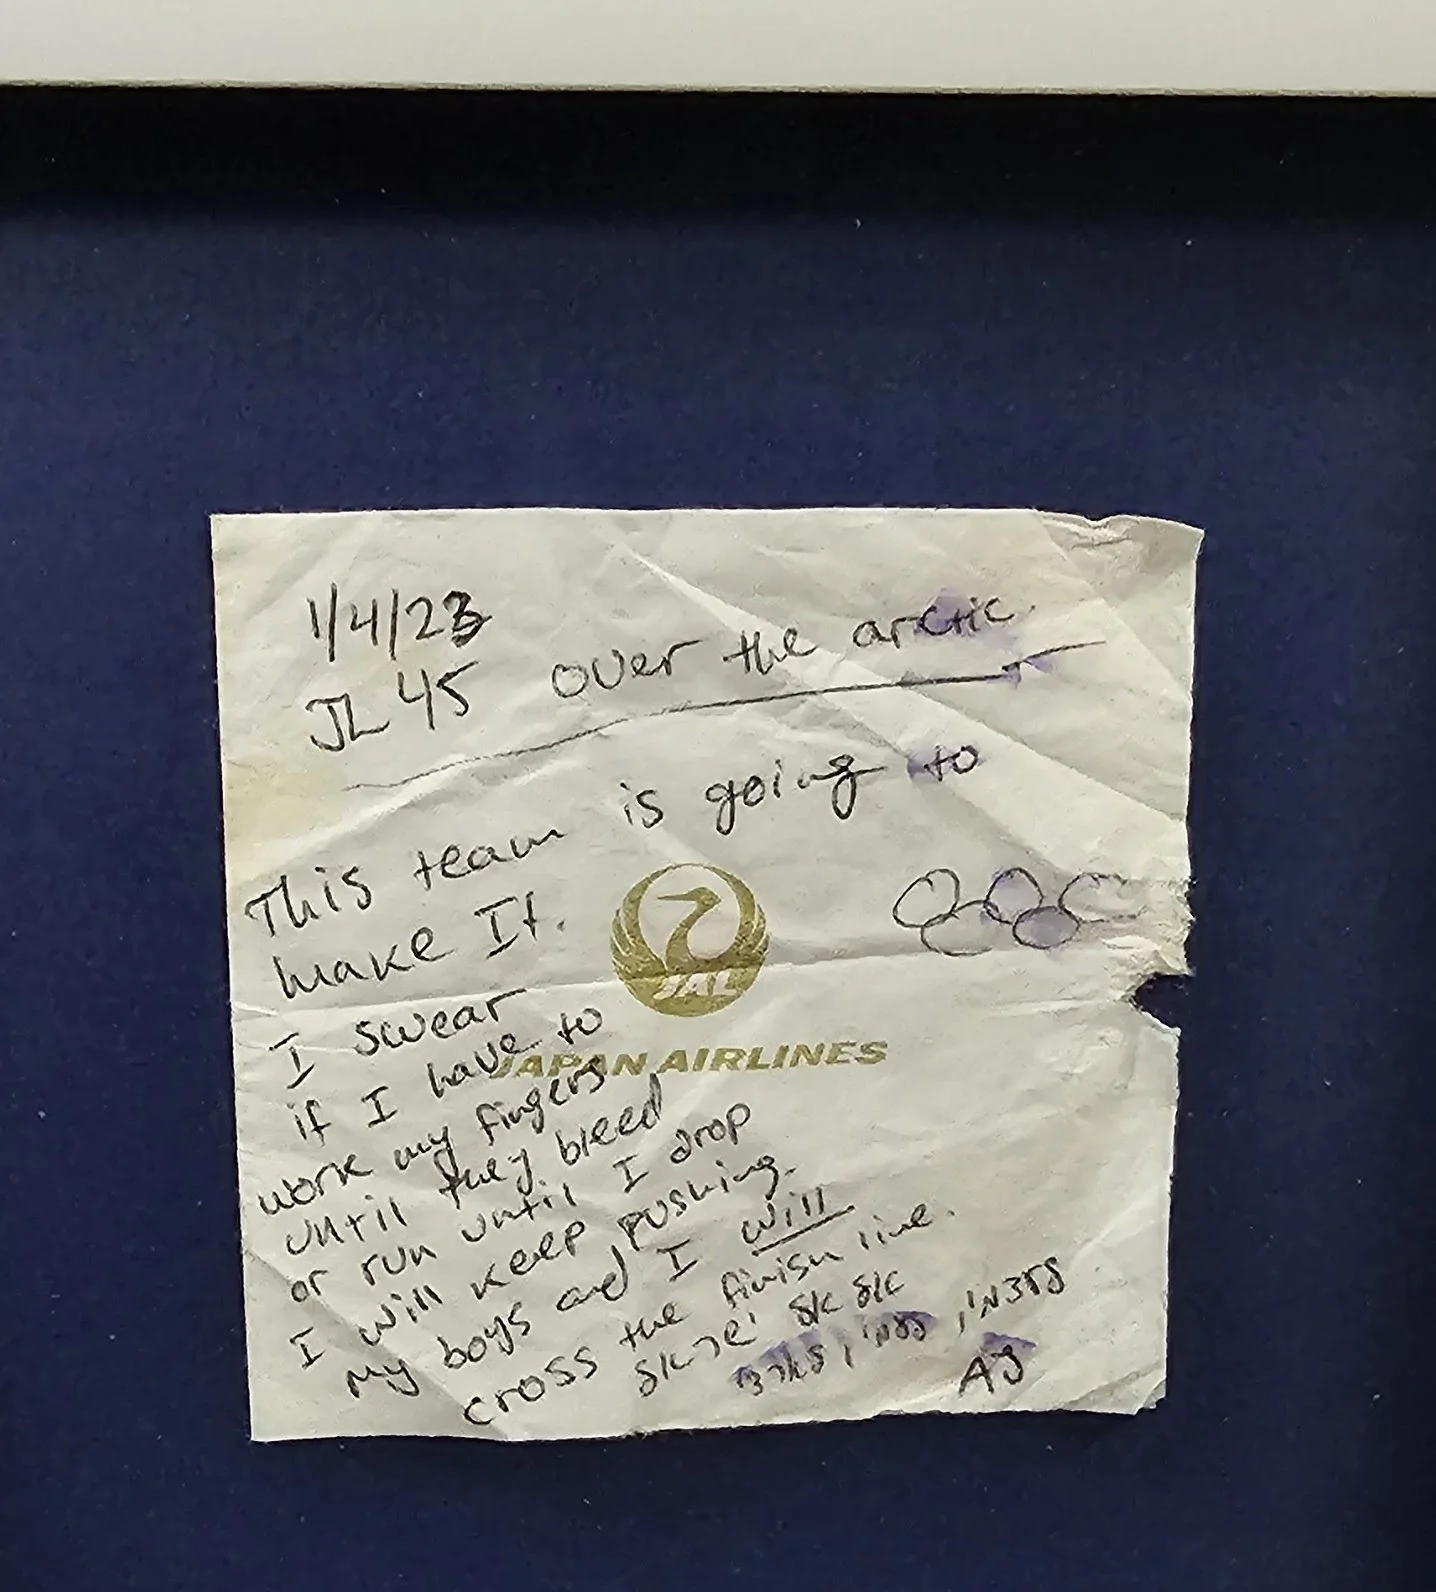 1/4/23
JL 45 over the arctic.
This team is going to
make It.
JAL
JAPAN AIRLINES
I swear
if I have to
work my fingers
until they bleed
or run until I drop
I will keep pushing.
my boys and I will
cross the finish line.
AJ